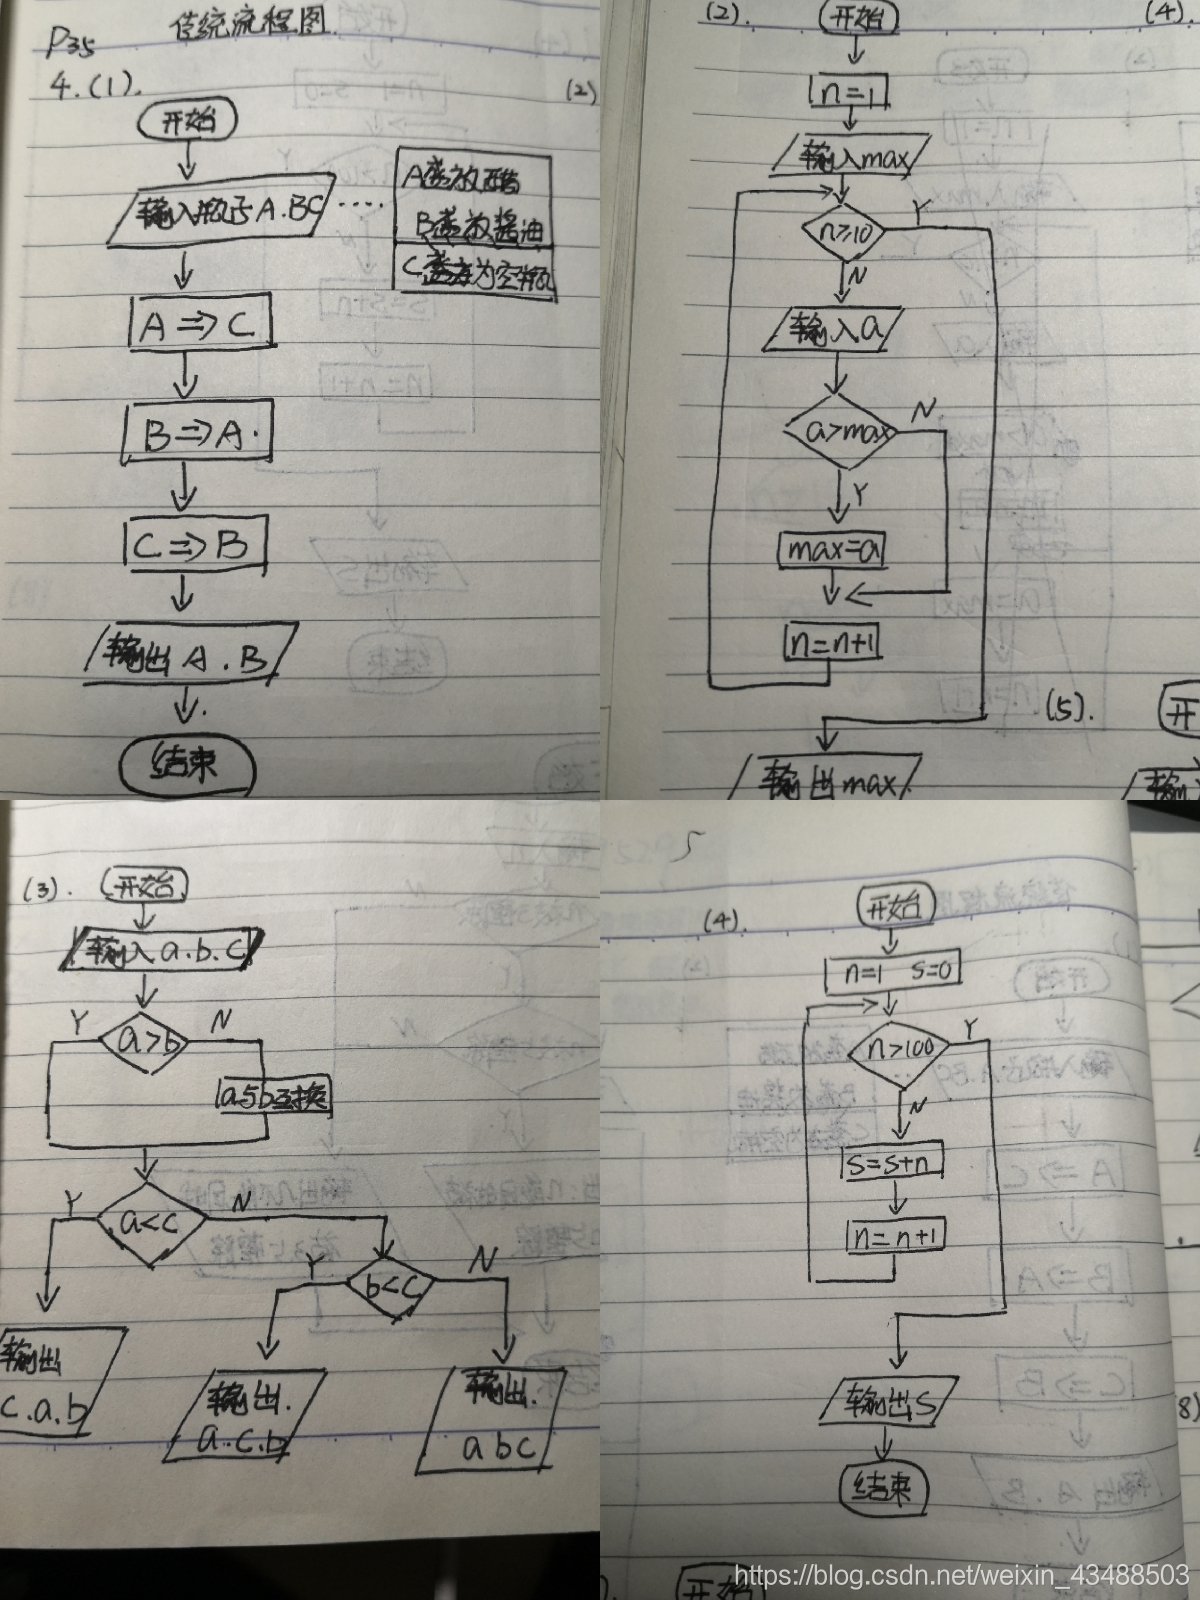 传统流程图
P35
4.(1).
开始
输入瓶子A.BC
A装放醋
B装放酱油
C为空瓶
A⇒C
B⇒A.
C⇒B
输出A.B
结束
(2)
(2).
开始
n=1
输入max
n≥10
Y
N
输入a
a>max
N
Y
max=a
n=n+1
输出max
(4).
(5).
开
输
(3).
开始
输入a.b.c
a>b
Y
N
a与b互换
a<c
Y
N
b<c
Y
N
输出
c.a.b
输出.
a.c.b
输出.
a b c
5
(4).
开始
n=1 s=0
n>100
Y
N
s=s+n
n=n+1
输出s
结束
8)
开始
https://blog.csdn.net/weixin_43488503